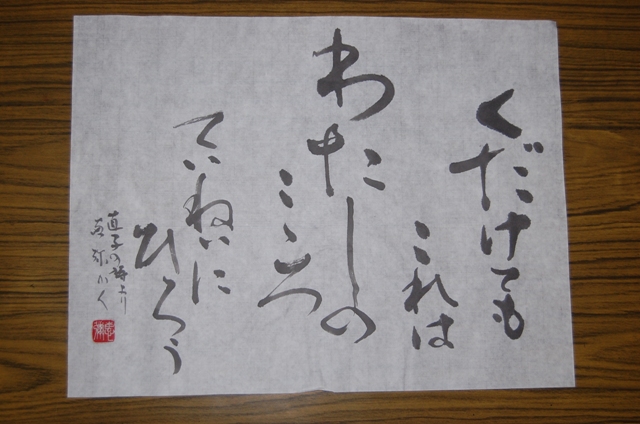 くだけても
これは
わたしの
こころ
ていねいに
ひろう
直子の詩より